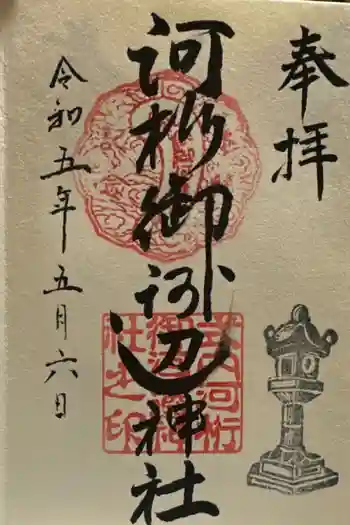 奉拝
河桁御河辺神社
式内河桁
御河邊神
社之印
令和五年五月六日